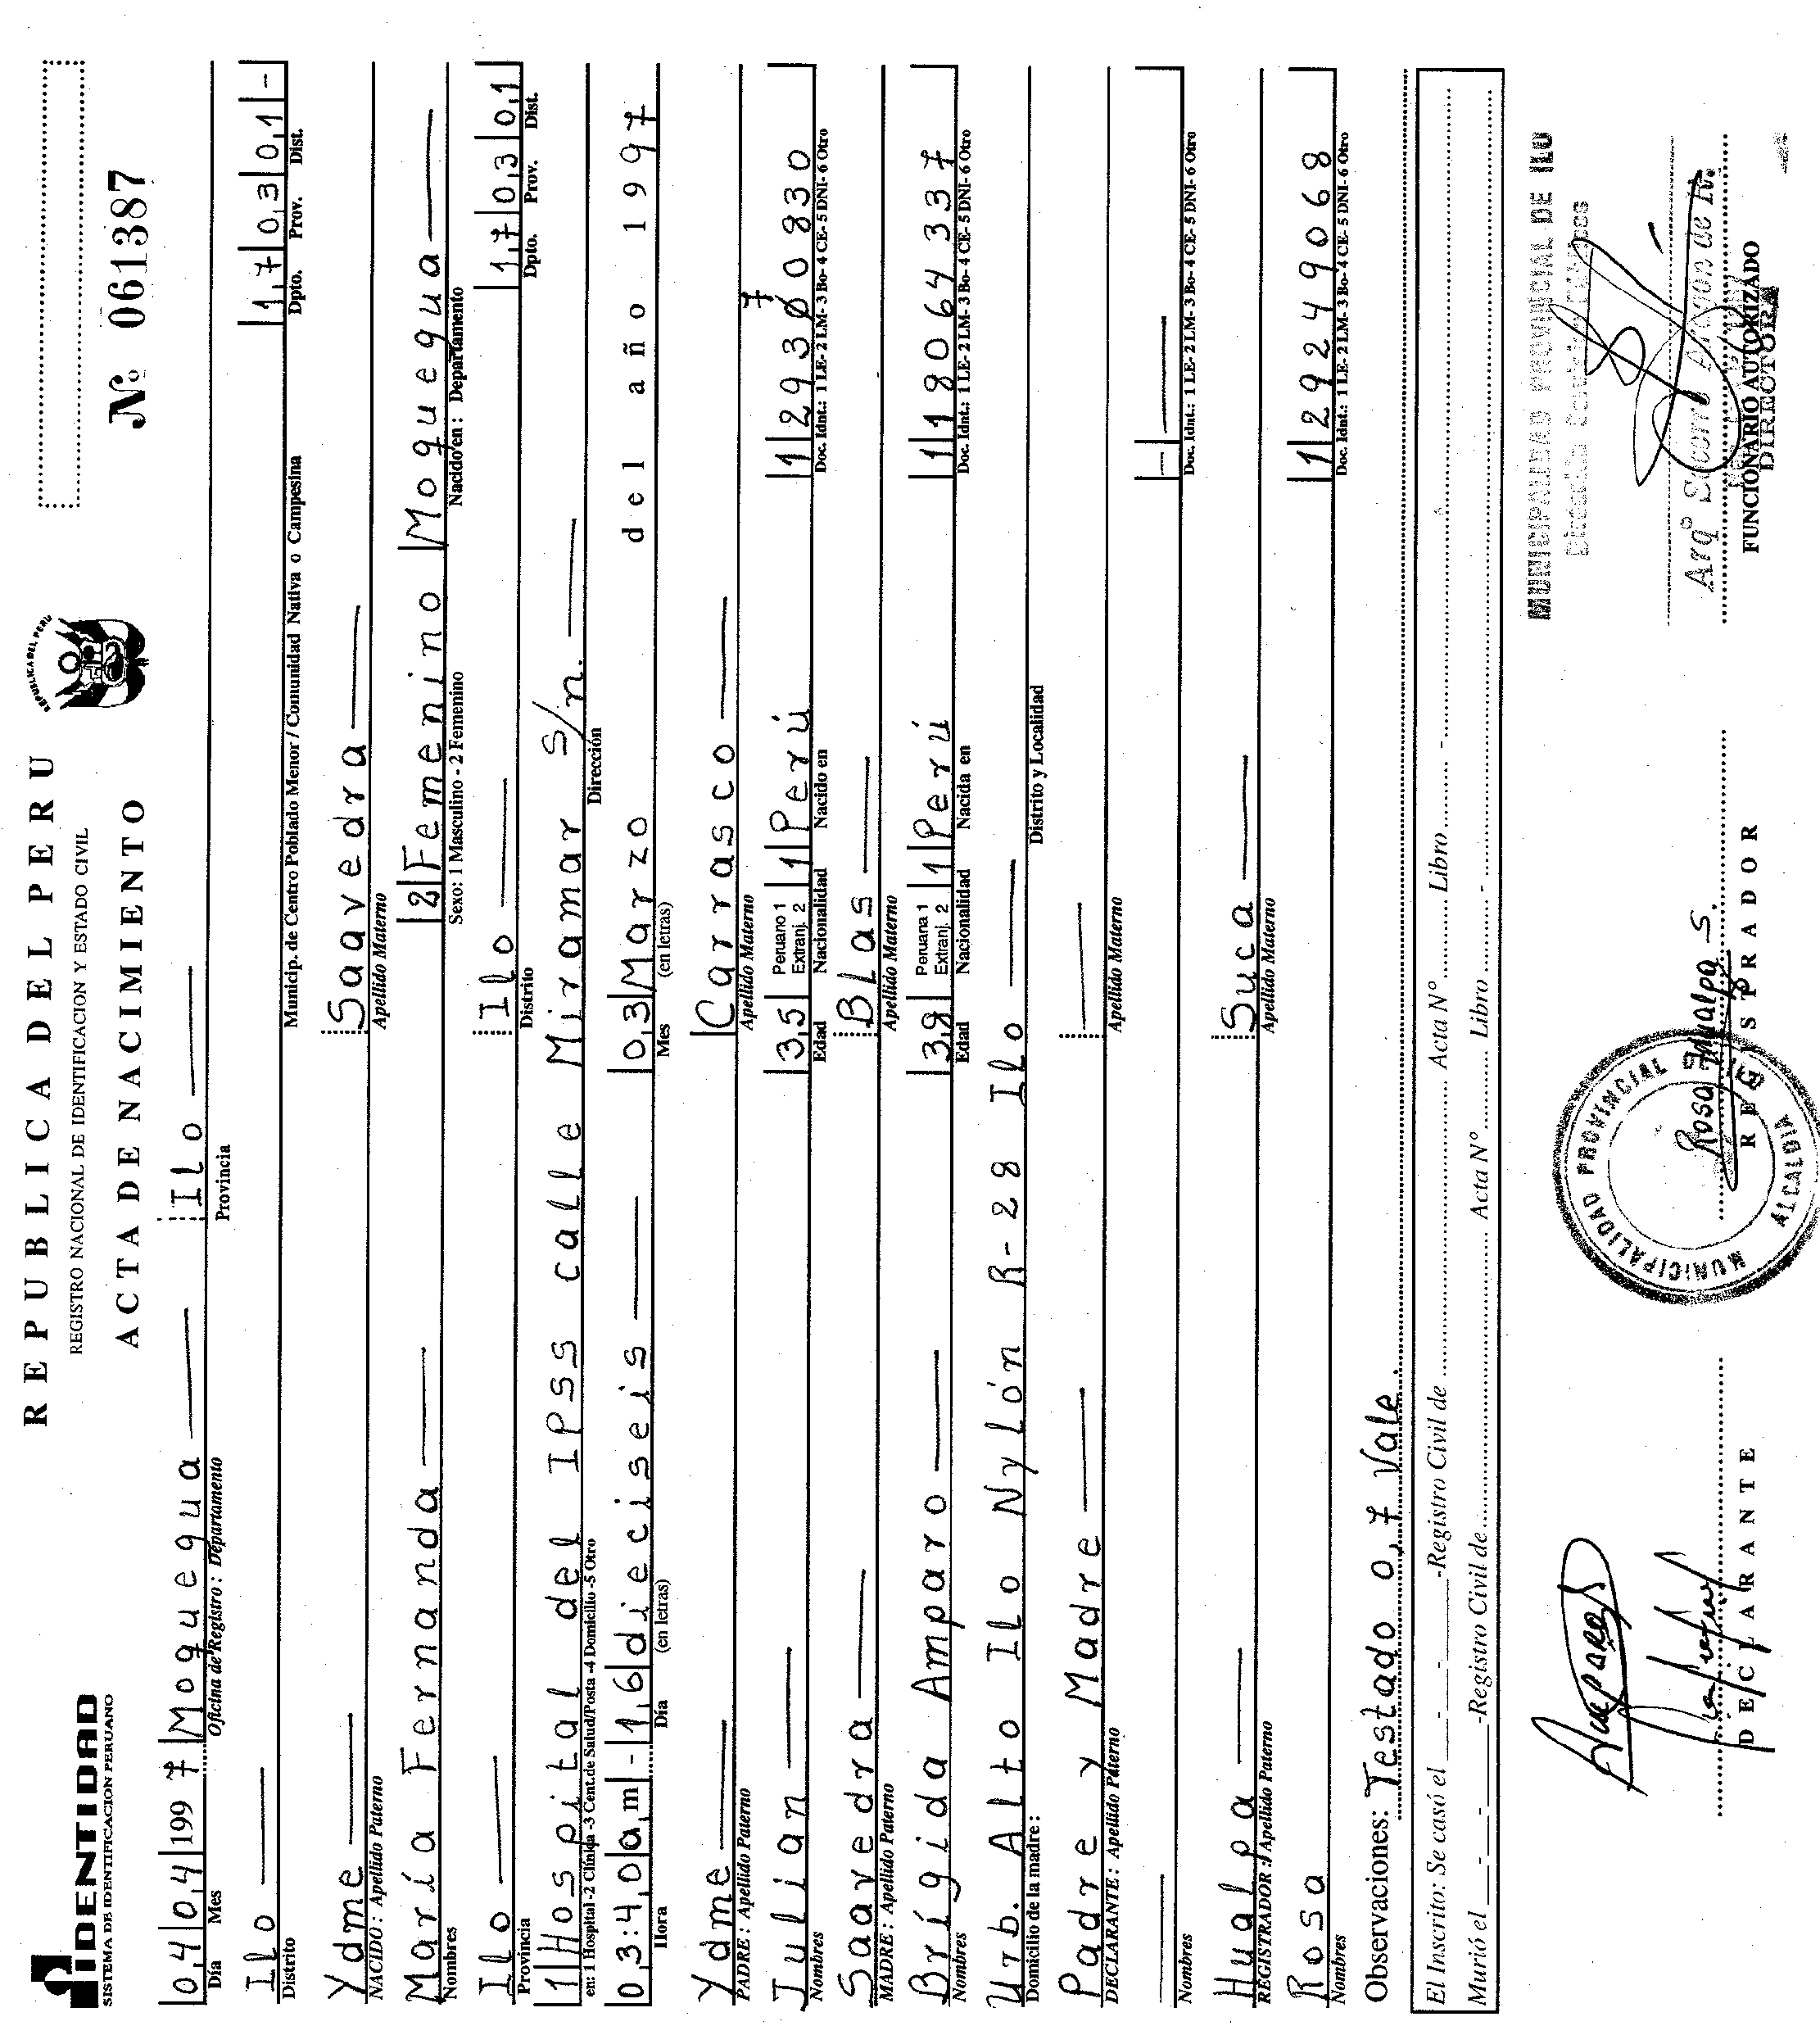 IDENTIDAD
SISTEMA DE IDENTIFICACION PERUANO
REPUBLICA DEL PERU
REGISTRO NACIONAL DE IDENTIFICACION Y ESTADO CIVIL
ACTA DE NACIMIENTO
REPUBLICA DEL PERU
Nº 061387
0,4 0,4 199 7 Moquegua Ilo
Día Mes Oficina de Registro : Departamento Provincia
Ilo 1,7 0,3 0,1 -
Distrito Municip. de Centro Poblado Menor / Comunidad Nativa o Campesina Dpto. Prov. Dist.
Ydme Saavedra
NACIDO : Apellido Paterno Apellido Materno
María Fernanda 2 Femenino Moquegua
Nombres Sexo: 1 Masculino - 2 Femenino Nacido en : Departamento
Ilo Ilo 1,7 0,3 0,1
Provincia Distrito Dpto. Prov. Dist.
1 Hospital del IPSS calle Miramar s/n.
en: 1 Hospital -2 Clínica -3 Cent.de Salud/Posta -4 Domicilio -5 Otro Dirección
0,3:4,0 a,m - 1,6 dieciseis 0,3 Marzo del año 1997
Hora Día (en letras) Mes (en letras)
Ydme Carrasco
PADRE : Apellido Paterno Apellido Materno
Julian 3,5 Peruano 1 Extranj. 2 1 Perú 1 29300830 7
Nombres Edad Nacionalidad Nacido en Doc. Idnt.: 1 LE- 2 LM- 3 Bo- 4 CE- 5 DNI- 6 Otro
Saavedra Blas
MADRE : Apellido Paterno Apellido Materno
Brígida Amparo 3,8 Peruana 1 Extranj. 2 1 Perú 1 18064337
Nombres Edad Nacionalidad Nacida en Doc. Idnt.: 1 LE- 2 LM- 3 Bo- 4 CE- 5 DNI- 6 Otro
Urb. Alto Ilo Nylón R-28 Ilo
Domicilio de la madre : Distrito y Localidad
Padre y Madre
DECLARANTE : Apellido Paterno Apellido Materno
Nombres Doc. Idnt.: 1 LE- 2 LM- 3 Bo- 4 CE- 5 DNI- 6 Otro
Hualpa Suca
REGISTRADOR : Apellido Paterno Apellido Materno
Rosa 1 29249068
Nombres Doc. Idnt.: 1 LE- 2 LM- 3 Bo- 4 CE- 5 DNI- 6 Otro
Observaciones: Testado o,7 Vale.
El Inscrito: Se casó el - - -Registro Civil de Acta Nº Libro -
Murió el - - -Registro Civil de Acta Nº Libro -
MUNICIPALIDAD PROVINCIAL DE ILO
Amparo S
MUNICIPALIDAD PROVINCIAL DE ILO
ALCALDIA
Rosa Hualpa S.
Arqº Socorro Aragon de R.
DECLARANTE REGISTRADOR FUNCIONARIO AUTORIZADO
DIRECTORA